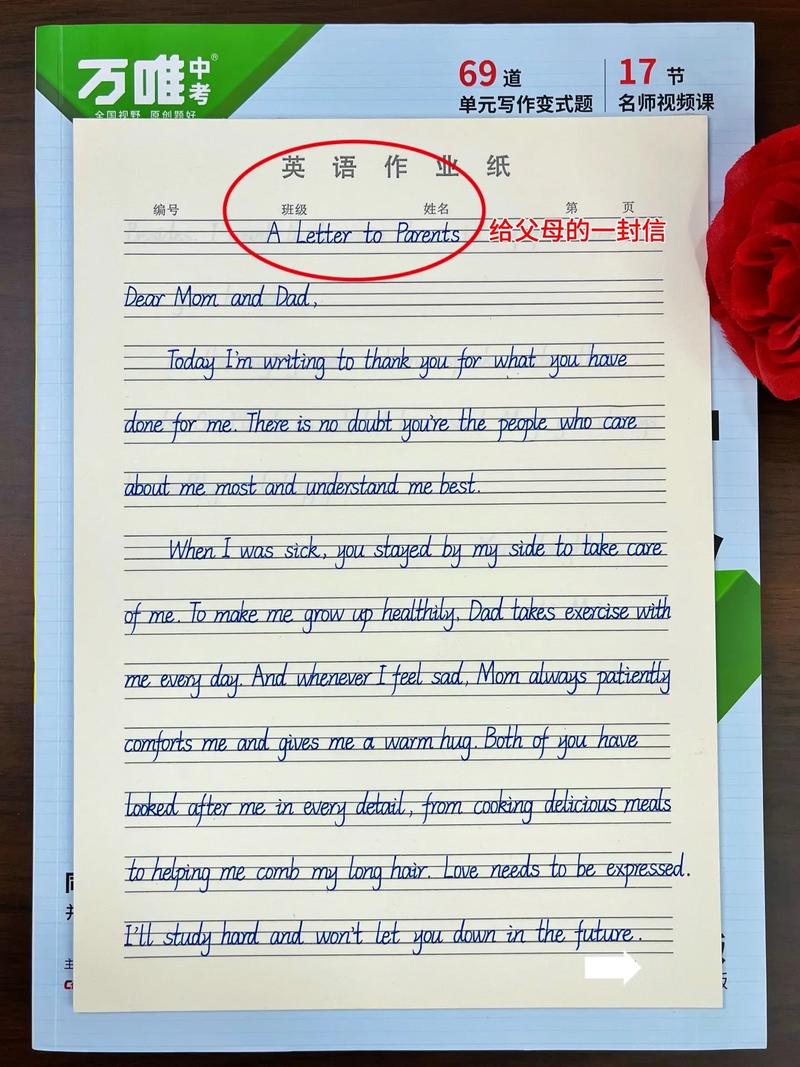 万唯中考®
全国视野 原创题好
69道 17节
单元写作变式题 名师视频课
英语作业纸
编号 班级 姓名 第 页
A Letter to Parents 给父母的一封信
Dear Mom and Dad,
Today I'm writing to thank you for what you have
done for me. There is no doubt you're the people who care
about me most and understand me best.
When I was sick, you stayed by my side to take care
of me. To make me grow up healthily, Dad takes exercise with
me every day. And whenever I feel sad, Mom always patiently
comforts me and gives me a warm hug. Both of you have
looked after me in every detail, from cooking delicious meals
to helping me comb my long hair. Love needs to be expressed.
I'll study hard and won't let you down in the future.